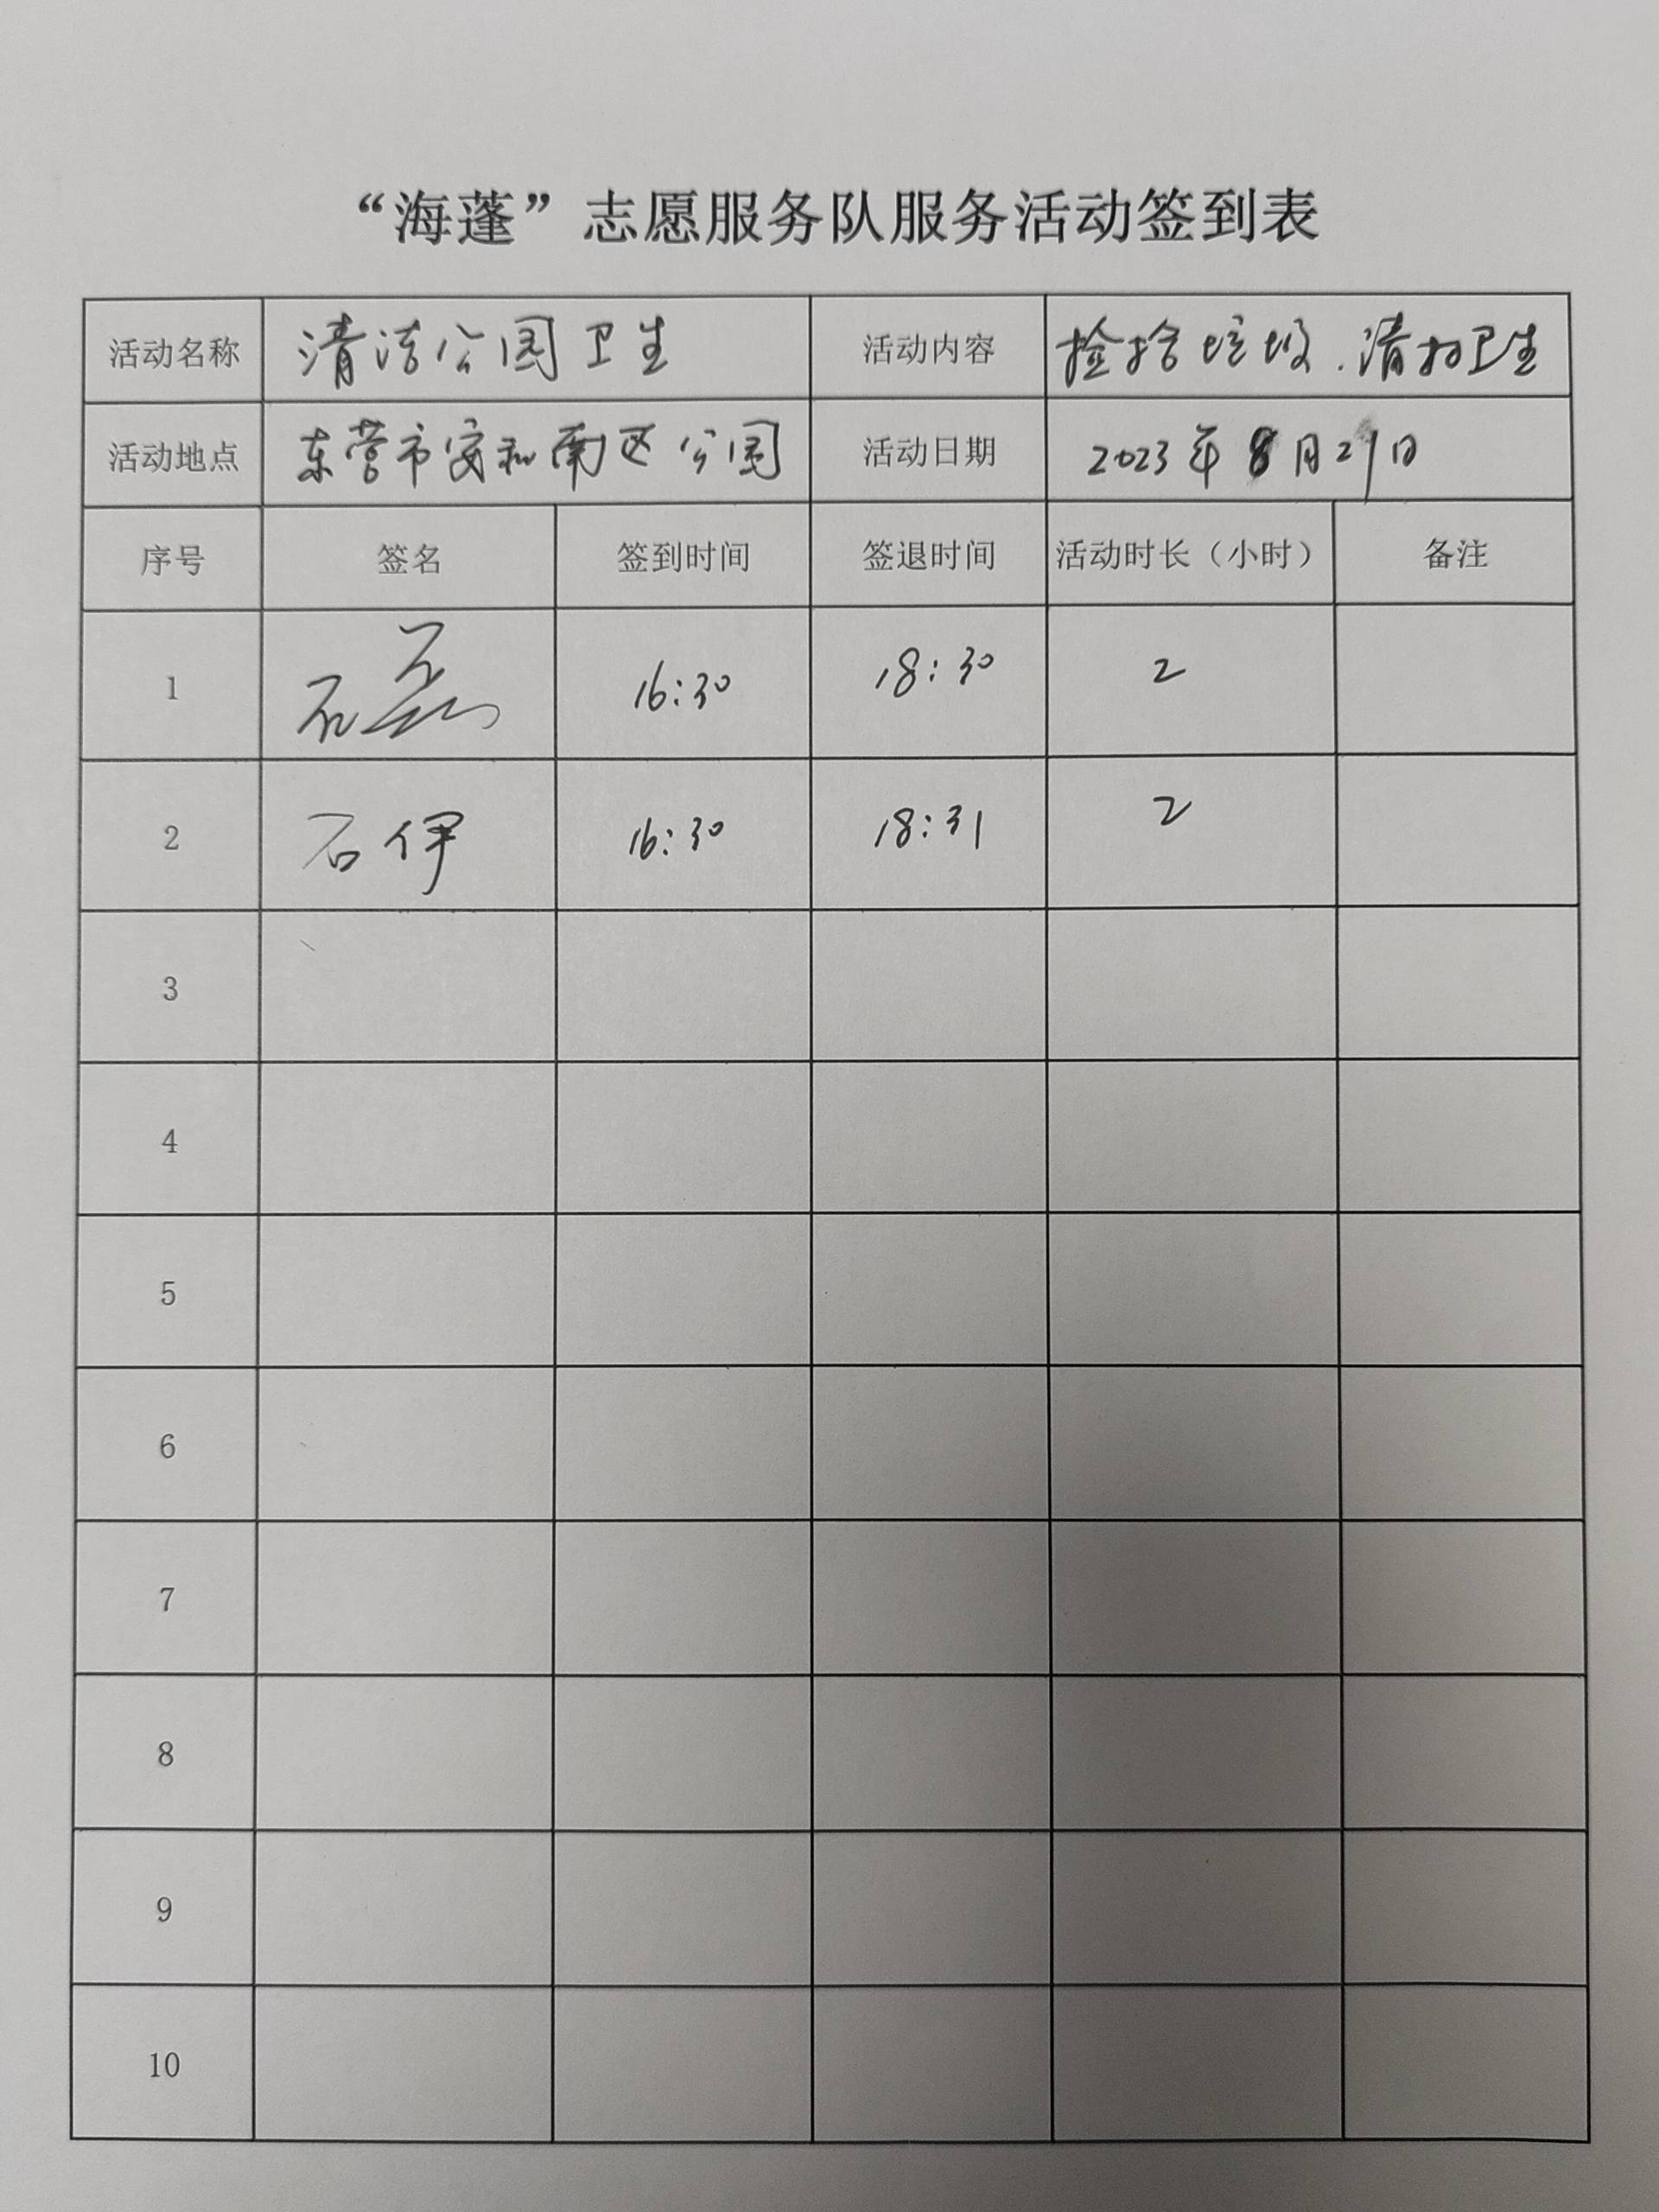 “海蓬”志愿服务队服务活动签到表
活动名称 清洁公园卫生 活动内容 捡拾垃圾.清扫卫生
活动地点 东营市安和南区公园 活动日期 2023年8月29日
序号 签名 签到时间 签退时间 活动时长（小时） 备注
1 石磊 16:30 18:30 2
2 石伊 16:30 18:31 2
3
4
5
6
7
8
9
10